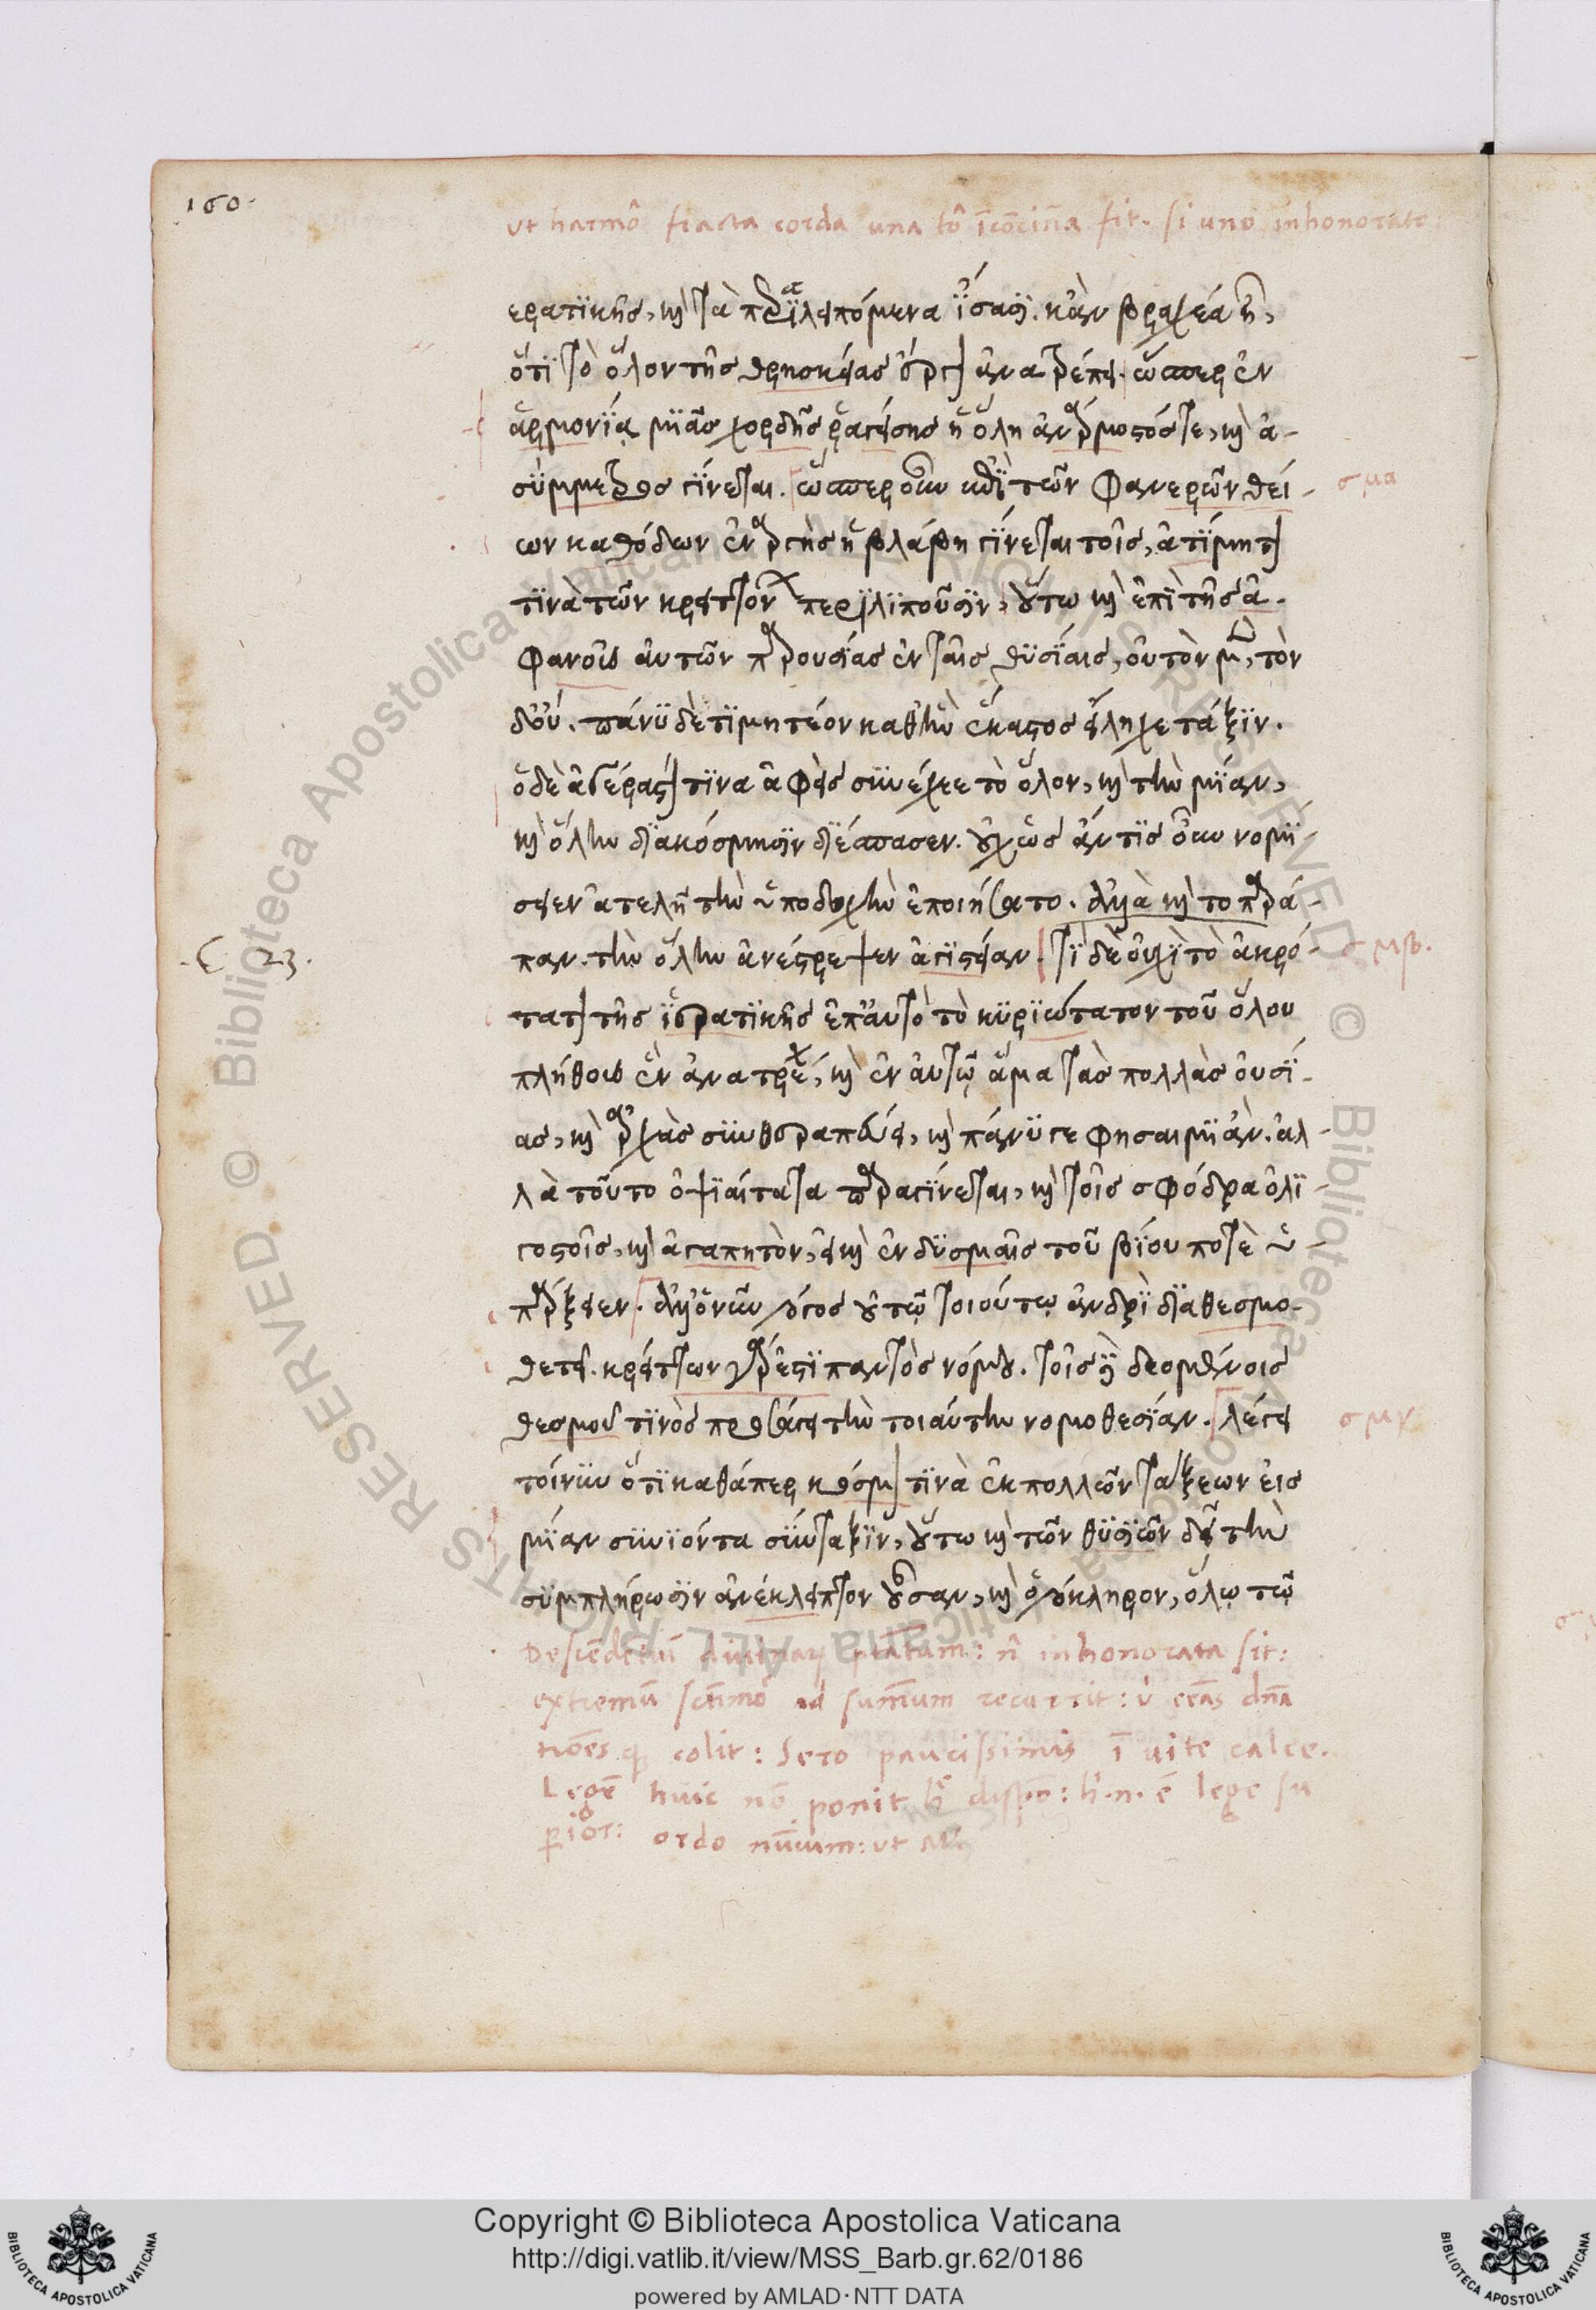 160.
ut harmo fracta corda una
si uno inhonorato
ερατικῆς, καὶ τὰ παραλειπόμενα ἴσασι. κἂν βραχέα ᾖ,
ὅτι τὸ ὅλον τῆς θρησκείας ἔργον ἀνατρέπει. ὥσπερ ἐν
ἁρμονίᾳ μιᾶς χορδῆς ῥαγείσης ἡ ὅλη ἀνάρμοστός τε, καὶ ἀ-
σύμμετρος γίνεται. ὥσπερ οὖν καὶ ἐπὶ τῶν φανερῶν θεί-
σμα
ων καθόδων ἐναργὴς ἡ βλάβη γίνεται τοῖς, ἀτίμητον
τινὰ τῶν κρειττόνων περιλιποῦσιν, οὕτω καὶ ἐπὶ τῆς ἀ-
φανοῦς αὐτῶν παρουσίας ἐν ταῖς θυσίαις, οὐ τὸν μὲν, τὸν
δ' οὔ. πάνυ δὲ τιμητέον καθ' ἣν ἕκαστος εἴληχε τάξιν.
ὁ δὲ ἀγέραστον τινα ἀφεὶς συνέχεε τὸ ὅλον, καὶ τὴν μίαν,
καὶ ὅλην διακόσμησιν διέσπασεν. οὐχ ὡς ἄν τις οὖν νομί-
σειεν ἀτελῆ τὴν ὑποδοχὴν ἐποιήσατο. ἀλλὰ καὶ τοπαρά-
παν τὴν ὅλην ἀνέστρεψεν ἁγιστείαν. τί δὲ οὐχὶ τὸ ἀκρό-
σμβ.
C 23.
τατον τῆς ἱερατικῆς ἐπ' αὐτὸ τὸ κυριώτατον τοῦ ὅλου
πλήθους ἓν ἀνατρέχει, καὶ ἐν αὐτῷ ἅμα τὰς πολλὰς οὐσί-
ας, καὶ ἀρχὰς συνθεραπεύει, καὶ πάνυ γε φήσαιμι ἄν. ἀλ-
λὰ τοῦτο ὀψιαίτατα παραγίνεται, καὶ τοῖς σφόδρα ὀλι-
γοστοῖς, καὶ ἀγαπητὸν, εἰ καὶ ἐν δυσμαῖς τοῦ βίου ποτὲ ὑ-
πάρξειεν. ἀλλ' ὁ νῦν λόγος οὐ τῷ τοιούτῳ ἀνδρὶ διαθεσμο-
θετεῖ. κρείττων γάρ ἐστι παντὸς νόμου. τοῖς δὲ δεομένοις
θεσμοῦ τινὸς προσάγει τὴν τοιαύτην νομοθεσίαν. λέγει
σμγ
τοίνυν ὅτι καθάπερ κόσμον τινὰ ἐκ πολλῶν τάξεων εἰς
μίαν συνιόντα σύνταξιν, οὕτω καὶ τῶν θυσιῶν δεῖ τὴν
συμπλήρωσιν ἀνέκλειπτον οὖσαν, καὶ ὁλόκληρον, ὅλῳ τῷ
inhonorata sit:
extremum
ad summum recurrit:
colit: sero paucissimis i vite calce.
Lege huic no ponit
lege su
ordo
ut
Copyright © Biblioteca Apostolica Vaticana
http://digi.vatlib.it/view/MSS_Barb.gr.62/0186
powered by AMLAD · NTT DATA